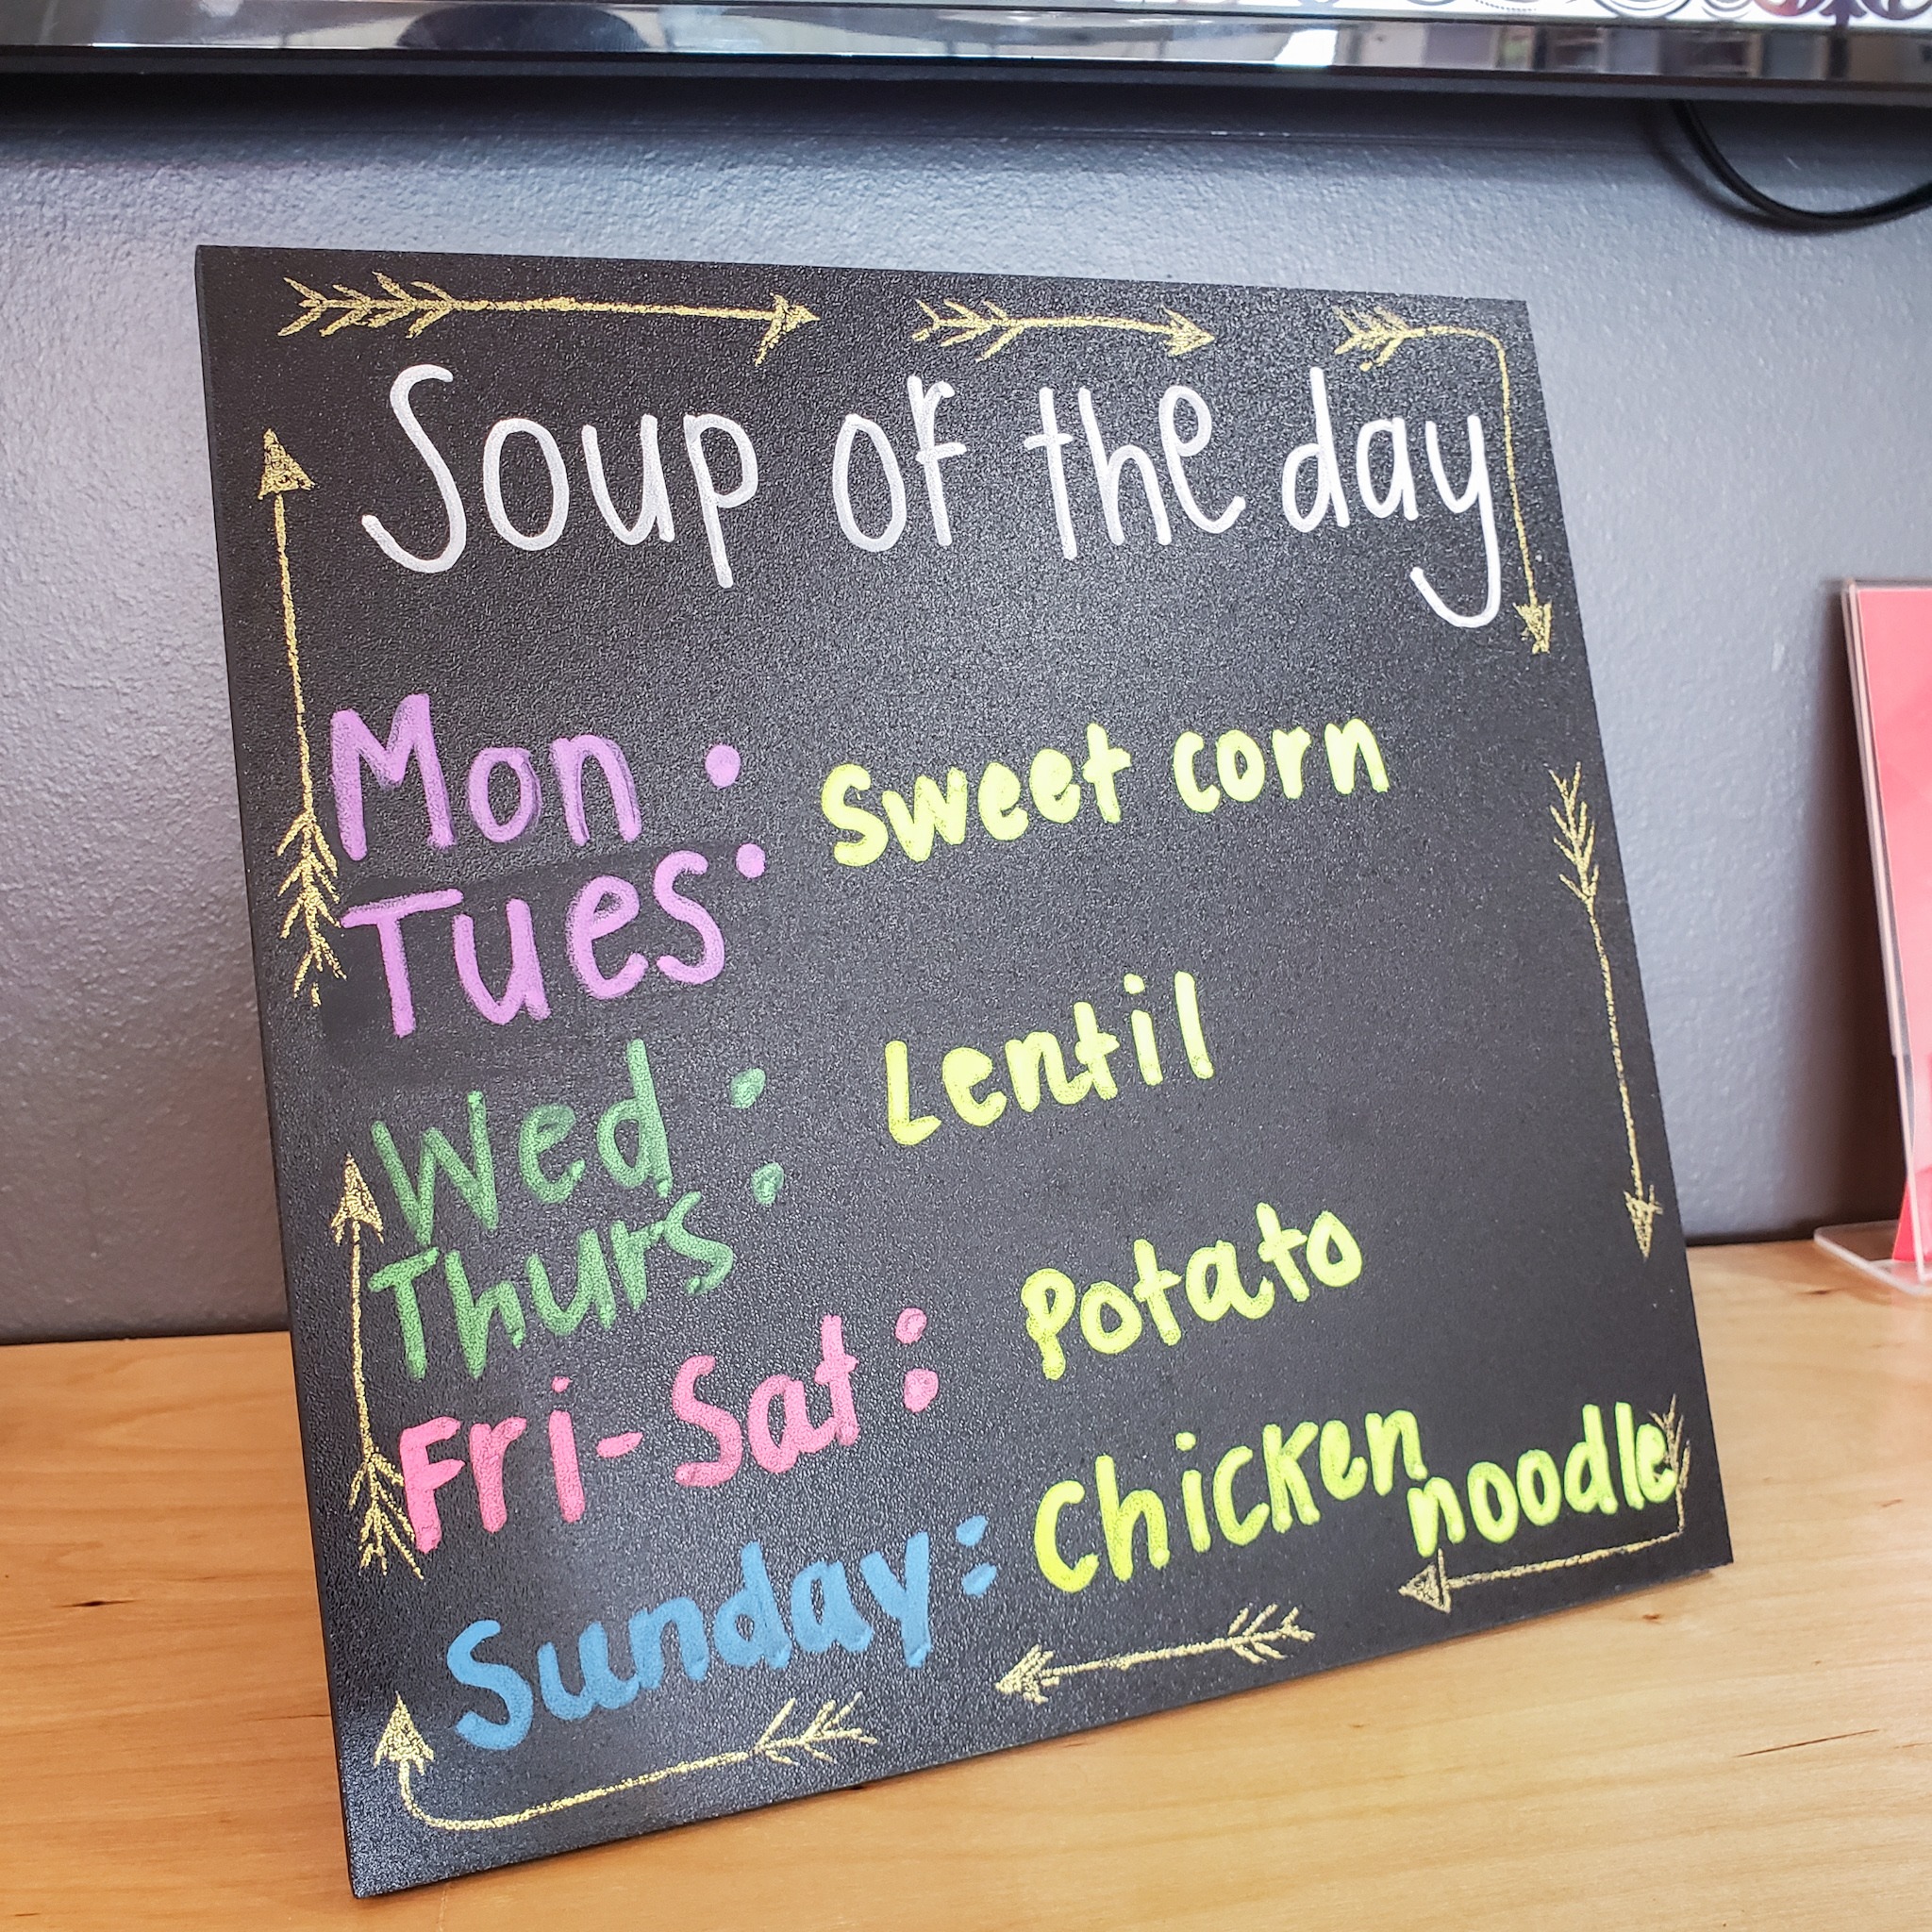 Soup of the day
Mon : Sweet corn
Tues
Wed : Lentil
Thurs :
Fri-Sat: Potato
Sunday: Chicken noodle